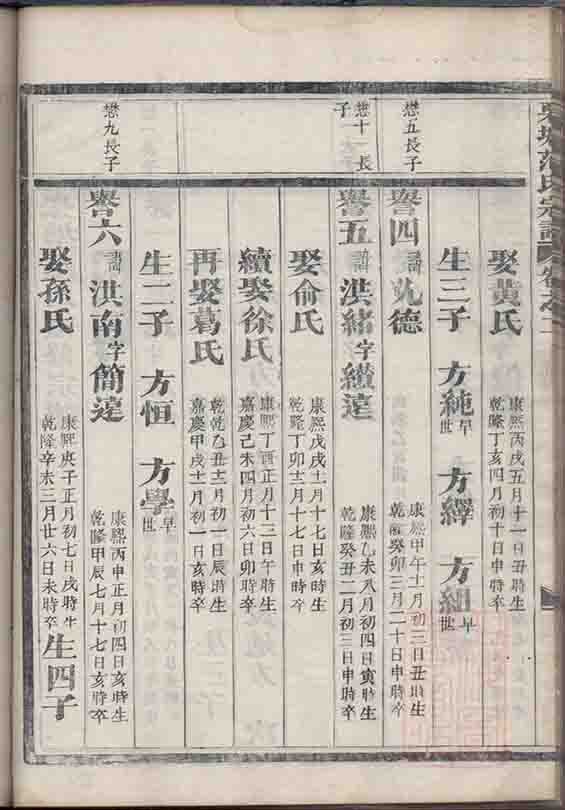 范氏宗譜
娶黃氏 康熙丙戌五月十一日丑時生 乾隆丁亥四月初十日申時卒
生三子 方純早世 方繹 方組早世
懋五長子
譽四 諱 德 康熙甲午十二月初三日丑時生 乾隆癸卯三月二十日申時卒
懋十一長子
譽五 諱洪緒字纘遠 康熙乙未八月初四日寅時生 乾隆癸丑二月初三日申時卒
娶俞氏 康熙戊戌十一月十七日亥時生 乾隆丁卯十一月十七日申時卒
續娶徐氏 康熙丁酉正月十三日午時生 嘉慶己未四月初六日卯時卒
再娶葛氏 乾隆乙丑十二月初一日辰時生 嘉慶甲戌十一月初一日亥時卒
生二子 方恒 方學早世
懋九長子
譽六 諱洪南字簡遠 康熙丙申正月初四日亥時生 乾隆甲辰七月十七日亥時卒
娶孫氏 康熙庚子正月初七日戌時生 乾隆辛未三月廿六日未時卒 生四子